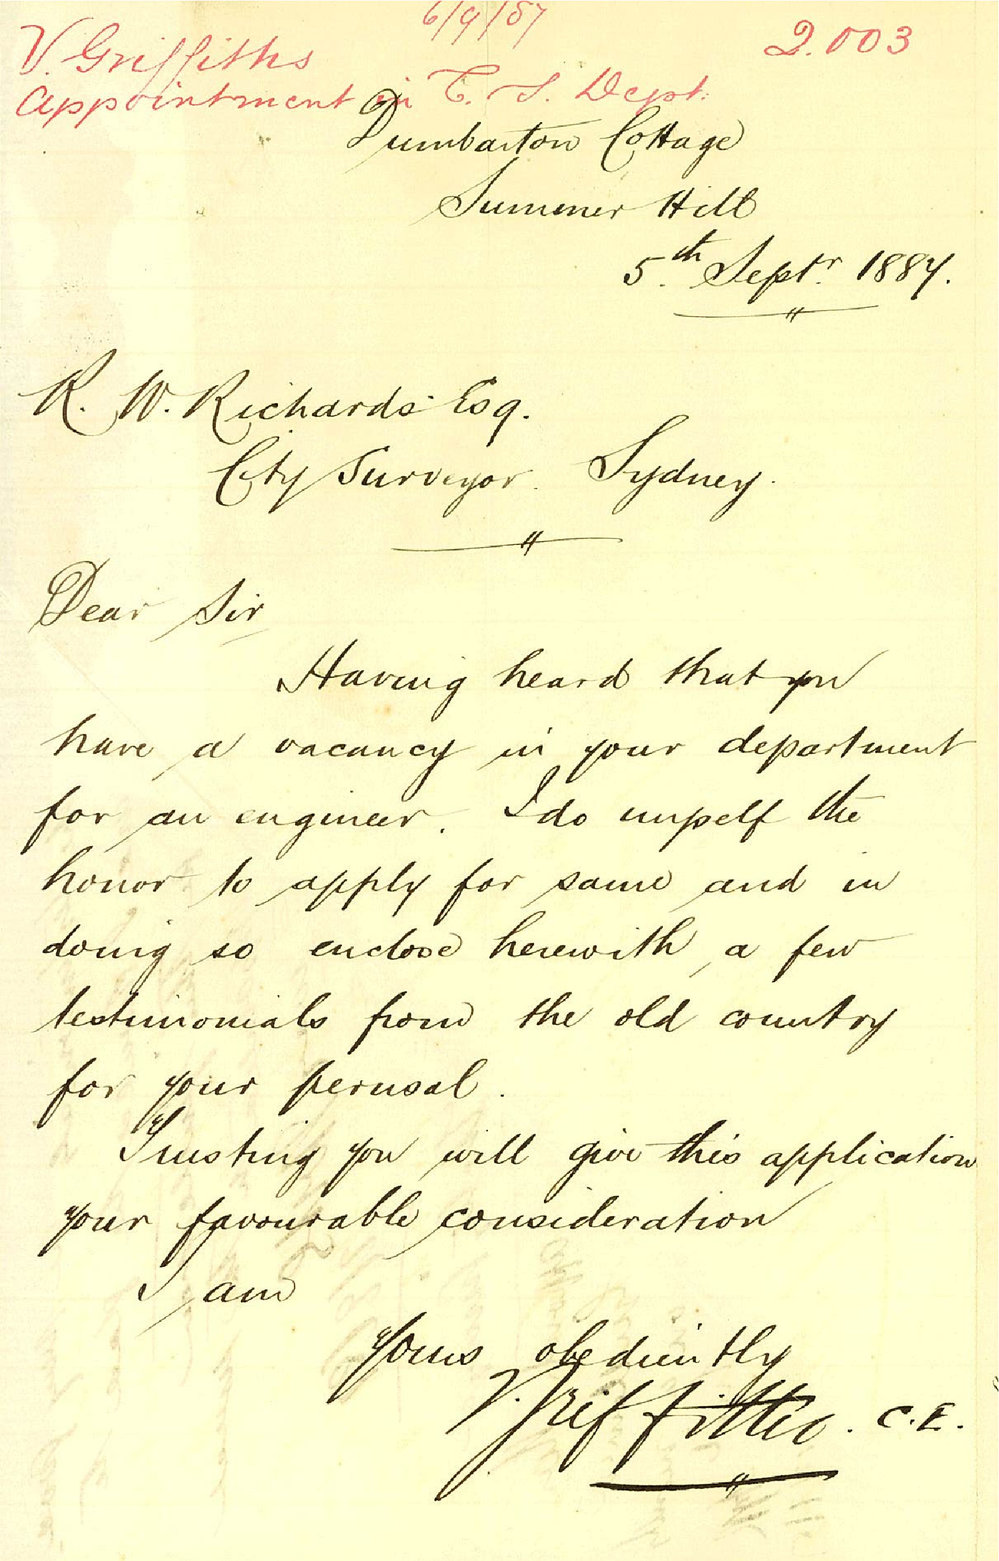 6/9/87
V. Griffiths 2.003
Appointment in C. S. Dept.
Dumbarton Cottage
Summer Hill
5th Septr. 1887.
R. W. Richards Esq.
City Surveyor. Sydney.
Dear Sir,
Having heard that you
have a vacancy in your department
for an engineer. I do myself the
honor to apply for same and in
doing so enclose herewith, a few
testimonials from the old country
for your perusal.
Trusting you will give this application
your favourable consideration
I am
Yours obediently
V. Griffiths. C.E.